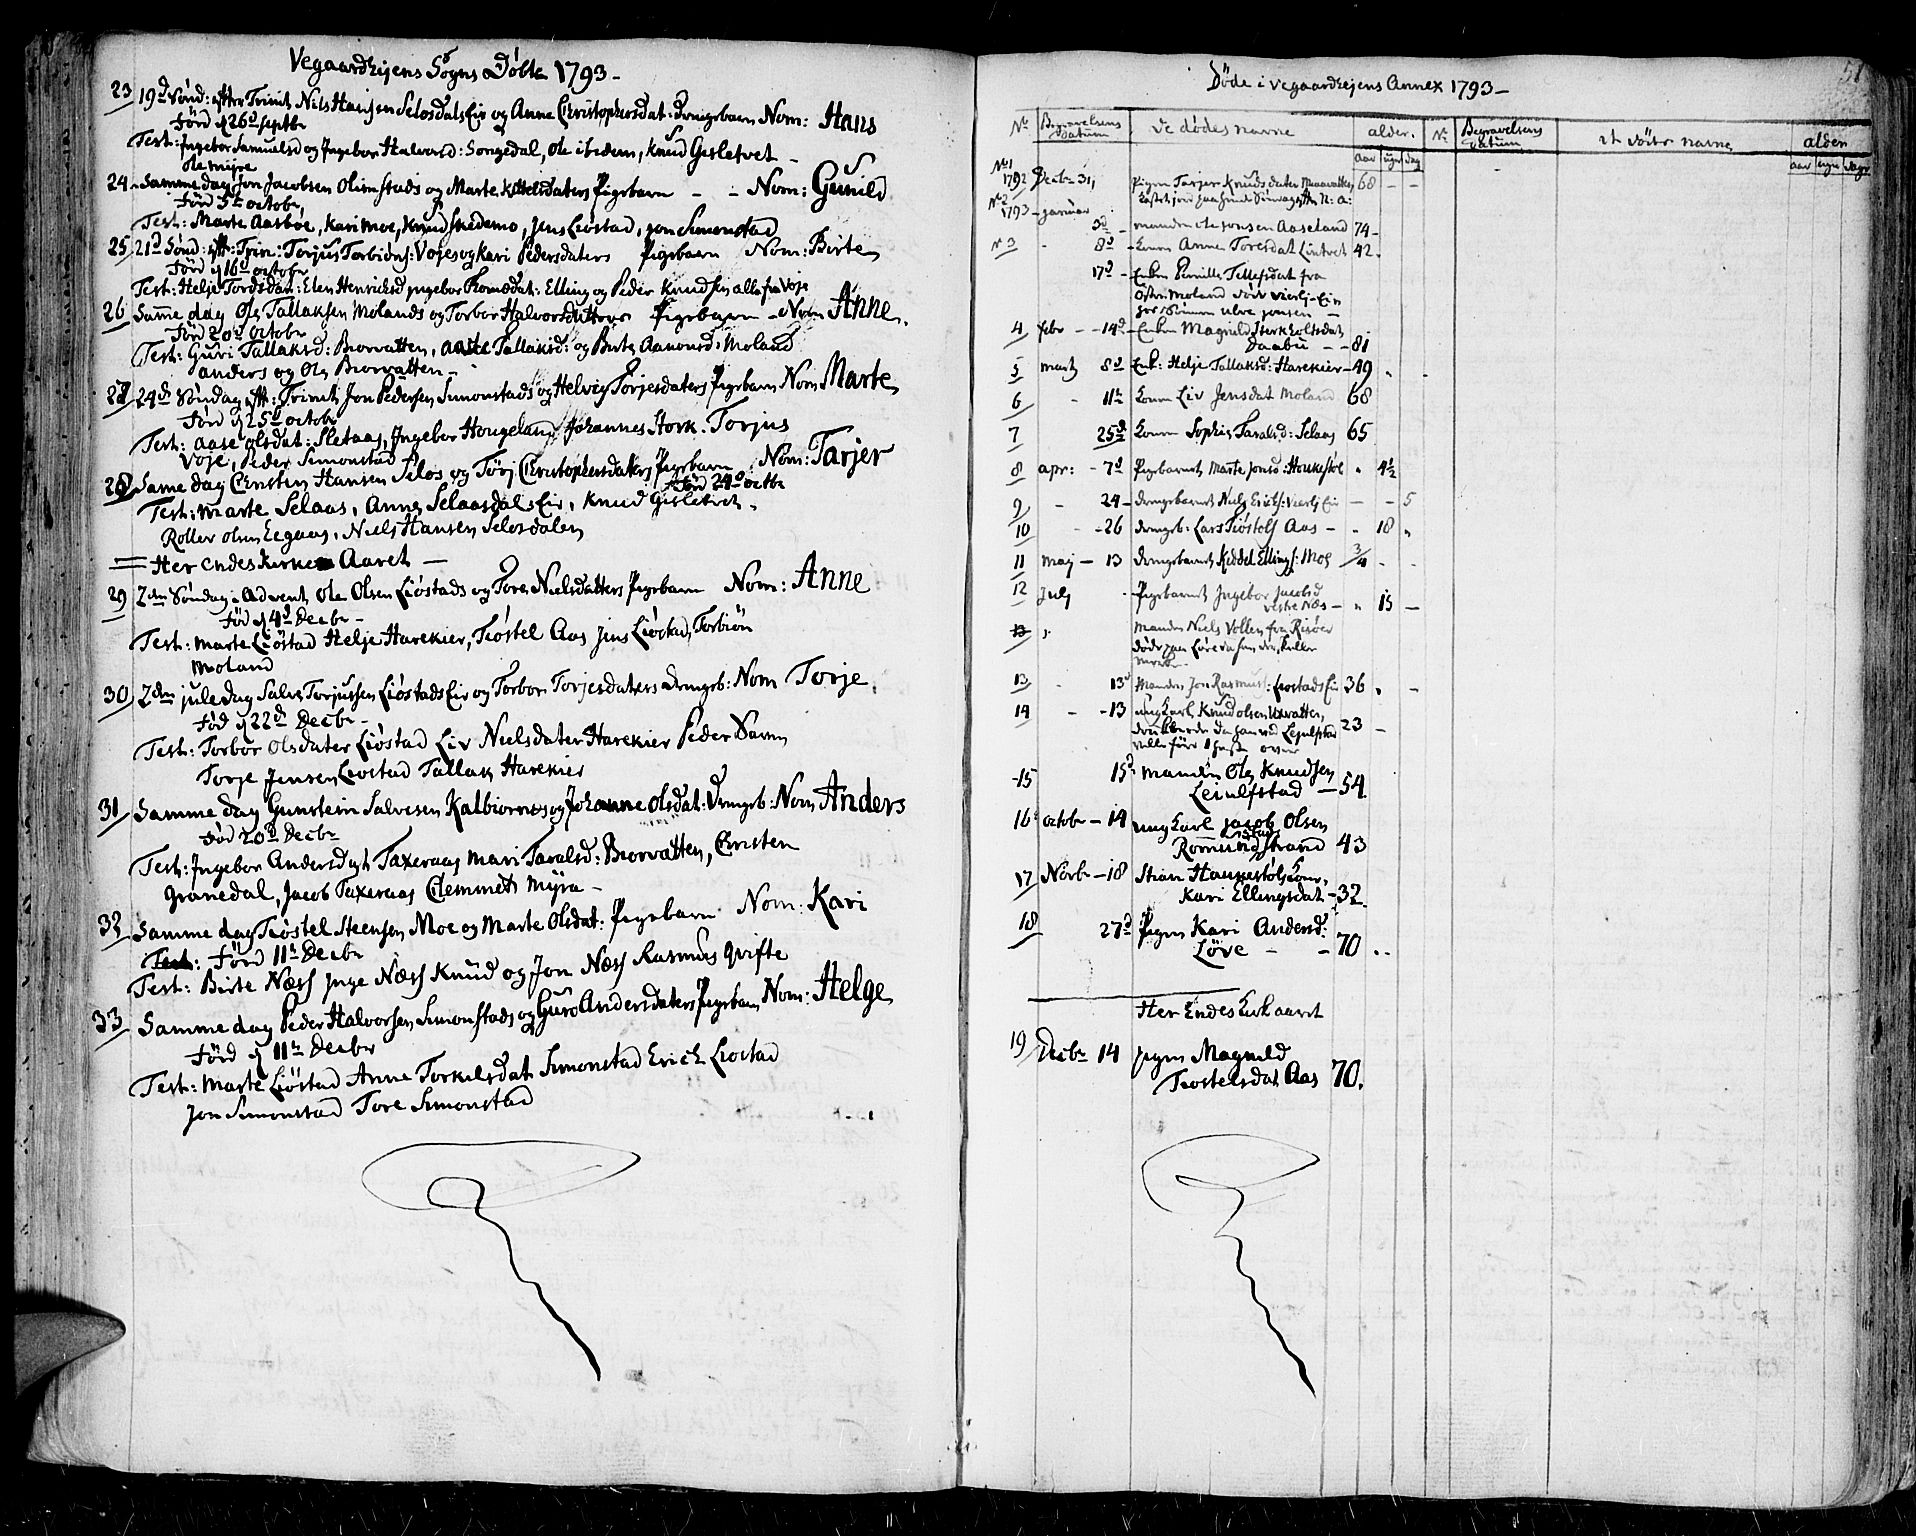 Vegaardhejens Sogns Døbte 1793 –
23 19d Sønd: efter Trinit Niels Hansen Selosdals Eie og Anne Christophersdat: Drengebarn Nom: Hans
Fød d 26d septbr
Test: Ingebor Samuelsd og Ingebor Halvorsd: Songedal, Ole ibidem, Knud Gisletvet –
Ole Myre
24 Samme dag Jon Jacobsen Olimstads og Marte Kittelsdaters Pigebarn – – Nom: Gunild
Fød 5d octobr
Test: Marte Aasbøe, Kari Moe, Knud Skedemo, Jens Liøstad, Jon Simonstad
25 21d Sønd: eft: Trin: Torjus Torbiøns: Vojes og Kari Pedersdaters Pigebarn Nom: Birte
Fød d 16d octobr
Test: Helje Tordsdat: Elen Henricksd Ingebor Thomædat: Elling og Peder Knudsen alle fra Voje
26 Same dag Ole Tallaksen Molands og Torbor Halvorsdatters Pigebarn – Nom Anne
Fød 20d octobr
Test: Guri Tallaksd: Biorvatten, Aaste Tallaksd: og Birte Aanonsd: Moland
anders og Ole Biorvatten –
27 24de Søndag eft: Trinit Jon Pedersen Simonstads og Helvig Torjesdaters Pigebarn Nom Marte
Fød d 25d octobr
Test: Aase Olsdat: Sletaas, Ingebor Hougeland Johannes Stork. Torjus
Voje, Peder Simonstad
28 Same dag Christen Hansen Seløs og Torj Christophersdaters Pigebarn Nom: Tarjer
Fød 24d octbr
Test: Marte Selaas, Anne Selaasdals Eie, Knud Gisletvet.
Roller Olsen Egaas, Niels Hansen Selosdalen
= Her endes Kirke Aaret –
29 2den Søndag i Advent Ole Olsen Liøstads og Tore Nielsdatters Pigebarn Nom: Anne
Fød d 4d Decbr –
Test: Marte Liøstad Helje Harekier, Tiøstel Aas Jens Liøstad, Torbiøn
Moland
30 2den juledag Salve Torjussen Liøstads Eie og Torbor Torjesdaters Drengeb: Nom Torje
Fød d 22de Decbr –
Test: Torbor Olsdater Liøstad Liv Nielsdater Harekier Peder Savn
Torje Jensen Liøstad Tallak Harekier
31 Samme dag Gunstein Salvesen Kalbiørnes og Johanne Olsdat: Drengeb: Nom Anders
Fød 20d Decbr
Test: Ingebor Andersdat Taxeraas Mari Taralsd: Biorvatten, Christen
Granedal, Jacob Taxeraas Clemmet Myra –
32 Samme dag Tiøstel Steensen Moe og Marte Olsdat: Pigebarn Nom: Kari
Fød 11te Decbr
Test: Birte Næss Inge Næss Knud og Jon Næss Rasmus Qvifte
33 Samme dag Peder Halvorsen Simonstads og Guro Andersdaters Pigebarn Nom: Helge
Fød d 11te Decbr
Test: Marte Liøstad Anne Torkelsdat Simonstad Erich Liøstad
Jon Simonstad Tore Simonstad
51
Døde i Vegaardhejens Annex 1793 –
No Begravelsens Datum De dødes navne alder. No Begravelsens Datum de dødes navne alder
aar ugr dag aar ugr dage
No 1 1792 Decbr 31, Pigen Tarjer Knudsdater 68 – –
No 2 1793 – januar
3d – manden Ole Jonsen Aaseland 74 –
No 3 8d – Konen Anne Toresdat Lintvet 42.
17d – Enken Pernille Tellefsdat fra
Østre Moland død Eie
4 febr – 14d – Enken Magnild
Daabu – 81
5 marts 8d Enk: Helje Tallaksd: Harekier – 49
6 – 11te Konen Liv Jensdat Moland 68
7 25d Konen Sophie Taralsd: Selaas 65
8 apr: – 7d Pigebarnet Marte Jonsd: Houkestøl " 4½
9 – 24 – drengebarnet Niels Erichs: Eie – – 5
10 – 26 drengeb: Lars Tiøstels Aas – " 18 "
11 maj – 13 drengebarnet Kiddel Ellings: Moe 3/4 – –
12 July Pigebarnet Ingebor Jacobsd
Vestre Næs – " 15 –
13 Manden Niels Vollen fra Risøer
døde paa Løve
13 13d Manden Jon Rasmus: Liøstads Eie 36
14 – 13 ung Karl Knud Olsen Uxvatten,
druknede da han ved Lejulfstad 23 –
vilde føre 1 hest over
15 15d Manden Ole Knudsen
Leiulfstad – 54
16 octobr – 14 ung Karl Jacob Olsen
Romundstad strand 43
17 Novbr – 18 Stian Haukestøls Kone,
Kari Ellingsdat – 32
18 27d Pigen Kari Andersd:
Løve – – 70
Her Endes Kirkaaret
19 Decbr 14 pigen Magnild
Tiostelsdat Aas 70.